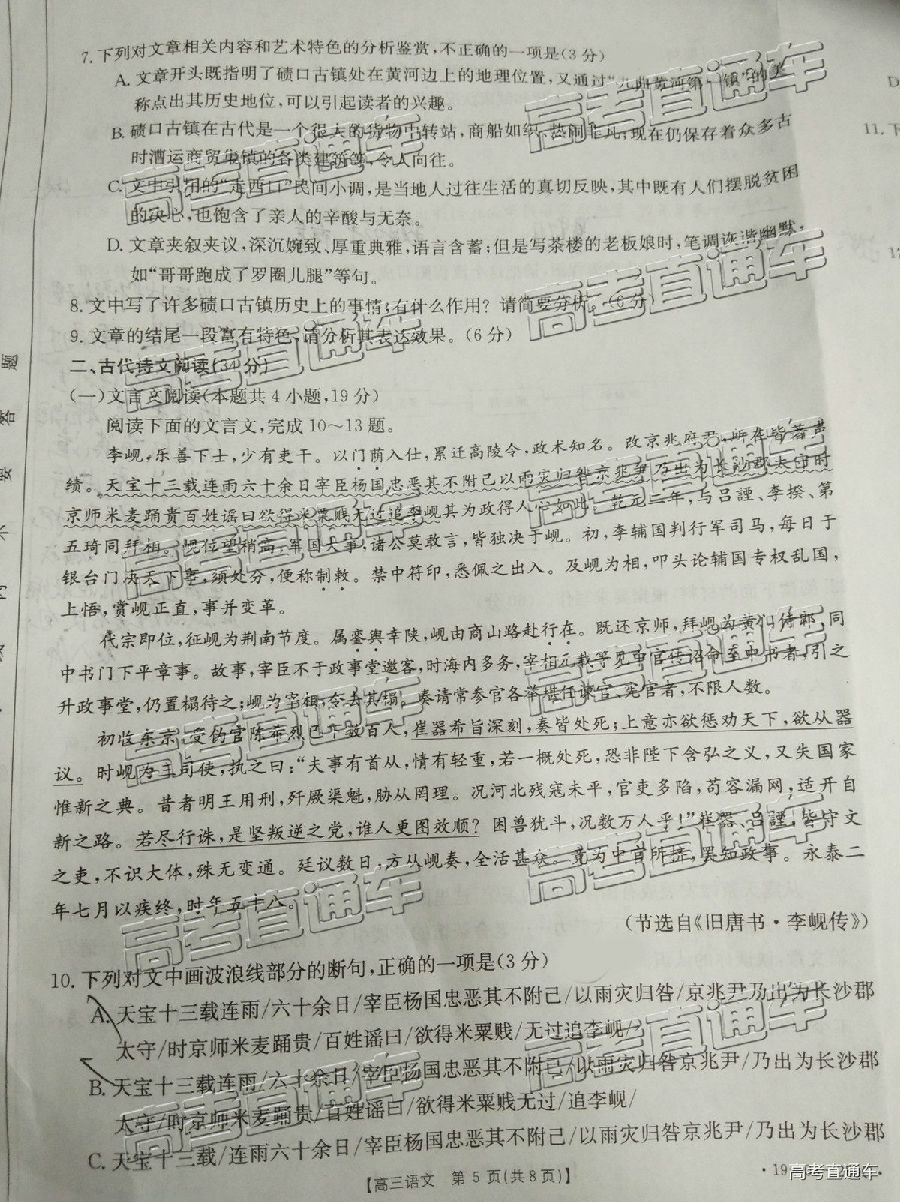 7. 下列对文章相关内容和艺术特色的分析鉴赏,不正确的一项是(3分)
A. 文章开头既指明了碛口古镇处在黄河边上的地理位置,又通过“九曲黄河第一镇”的美
称点出其历史地位,可以引起读者的兴趣。
B. 碛口古镇在古代是一个很大的货物中转站,商船如织,热闹非凡;现在仍保存着众多古
时漕运商贸集镇的各类建筑等,令人向往。
C. 文中引用的“走西口”民间小调,是当地人过往生活的真切反映,其中既有人们摆脱贫困
的决心,也饱含了亲人的辛酸与无奈。
D. 文章夹叙夹议,深沉婉致、厚重典雅,语言含蓄;但是写茶楼的老板娘时,笔调诙谐幽默,
如“哥哥跑成了罗圈儿腿”等句。
8. 文中写了许多碛口古镇历史上的事情,有什么作用?请简要分析。(6分)
9. 文章的结尾一段富有特色,请分析其表达效果。(6分)
二、古代诗文阅读(34分)
(一)文言文阅读(本题共4小题,19分)
阅读下面的文言文,完成10~13题。
李岘,乐善下士,少有吏干。以门荫入仕,累迁高陵令,政术知名。改京兆府尹,所在皆著声
绩。天宝十三载连雨六十余日宰臣杨国忠恶其不附己以雨灾归咎京兆尹乃出为长沙郡太守时
京师米麦踊贵百姓谣曰欲得米粟贱无过追李岘其为政得人心如此。乾元二年,与吕諲、李揆、第
五琦同拜相。岘位望稍高,军国大事,诸公莫敢言,皆独决于岘。初,李辅国判行军司马,每日于
银台门决天下事,须处分,便称制敕。禁中符印,悉佩之出入。及岘为相,叩头论辅国专权乱国,
上悟,赏岘正直,事并变革。
代宗即位,征岘为荆南节度。属銮舆幸陕,岘由商山路赴行在。既还京师,拜岘为黄门侍郎、同
中书门下平章事。故事,宰臣不于政事堂邀客,时海内多务,宰相元载等见中官传诏命至中书者,引之
升政事堂,仍置榻待之;岘为宰相,令去其榻。奏请常参官各举堪任谏官、宪官者,不限人数。
初收东京,受伪官陈希烈已下数百人,崔器希旨深刻,奏皆处死;上意亦欲惩劝天下,欲从器
议。时岘为三司使,执之曰:“夫事有首从,情有轻重,若一概处死,恐非陛下含弘之义,又失国家
惟新之典。昔者明王用刑,歼厥渠魁,胁从罔理。况河北残寇未平,官吏多陷,苟容漏网,适开自
新之路。若尽行诛,是坚叛逆之党,谁人更图效顺?困兽犹斗,况数万人乎!”崔器、吕諲,皆守文
之吏,不识大体,殊无变通。廷议数日,方从岘奏,全活甚众。竟为中官所挤,罢知政事。永泰二
年七月以疾终,时年五十八。
(节选自《旧唐书·李岘传》)
10. 下列对文中画波浪线部分的断句,正确的一项是(3分)
A. 天宝十三载连雨/六十余日/宰臣杨国忠恶其不附己/以雨灾归咎/京兆尹乃出为长沙郡
太守/时京师米麦踊贵/百姓谣曰/欲得米粟贱/无过追李岘/
B. 天宝十三载连雨/六十余日/宰臣杨国忠恶其不附己/以雨灾归咎京兆尹/乃出为长沙郡
太守/时京师米麦踊贵/百姓谣曰/欲得米粟贱无过/追李岘/
C. 天宝十三载/连雨六十余日/宰臣杨国忠恶其不附己/以雨灾归咎京兆尹/乃出为长沙郡
【高三语文 第5页(共8页)】
·19
高考直通车
题
答
要
D
11. 下
高考直通车
高考直通车
高考直通车
高考直通车
高考直通车
高考直通车
高考直通车
高考直通车
高考直通车
高考直通车